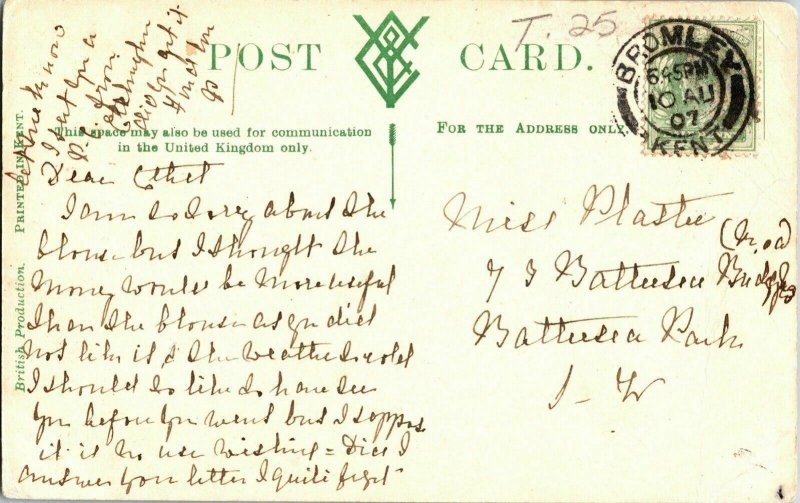 let me know
I sent you a
P.C. from
did you get it
POST CARD.
T. 25
BROMLEY
6 45 PM
10 AU
07
KENT
This space may also be used for communication
in the United Kingdom only.
FOR THE ADDRESS ONLY.
British Production. PRINTED IN KENT.
Dear Ethel
I am so sorry about the
blouse but I thought the
money would be more useful
than the blouse as you did
not like it & the weather so cold
I should so like to have seen
you before you went but I soppose
it is no use wishing = Did I
answer your letter I quite forget
Miss Plaster
73 Battersea Bridge Rd
Battersea Park
S. W